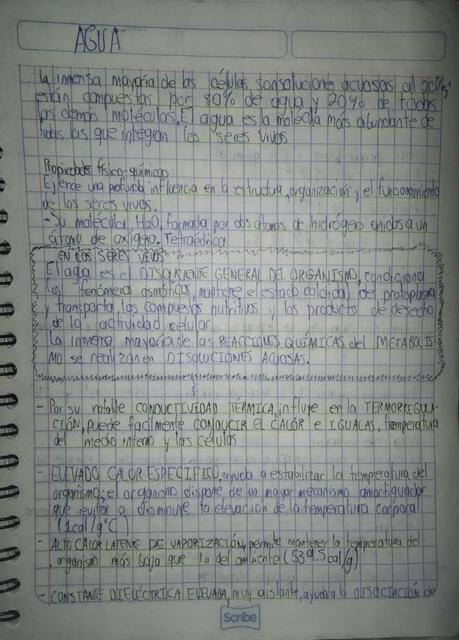 AGUA
La inmensa mayoría de las células son soluciones acuosas al
están compuestas por 80% de agua y 20% de todas
las demás moléculas. El agua es la molécula más abundante de
todas las que integran los seres vivos
Propiedades físico-químicas
Ejerce una profunda influencia en la estructura, organización y el funcionamiento
de los seres vivos.
- Su molécula H2O, formada por dos átomos de hidrógeno unidos a un
átomo de oxígeno. Tetraédrica
EN LOS SERES VIVOS
El agua es el DISOLVENTE GENERAL DEL ORGANISMO, condiciona
los fenómenos osmóticos, mantiene el estado coloidal del protoplasma
y transporta, los compuestos nutritivos y los productos de desecho
de la actividad celular.
La inmensa mayoría de las REACCIONES QUÍMICAS del METABOLIS
MO se realizan en DISOLUCIONES ACUOSAS.
- Por su notable CONDUCTIVIDAD TÉRMICA, influye en la TERMORREGULA-
CIÓN, puede facilmente CONDUCIR EL CALOR e IGUALAS, temperatura
del medio interno y las células
- ELEVADO CALOR ESPECÍFICO, ayuda a estabilizar la temperatura del
organismo; el organismo dispone de un mayor mecanismo amortiguador
que evita o disminuye la elevación de la temperatura corporal
(1cal/g°C)
- ALTO CALOR LATENTE DE VAPORIZACIÓN, permite mantener la temperatura del
organismo más baja que la del ambiente (539.5cal/g)
- CONSTANTE DIELÉCTRICA ELEVADA, muy aislante, ayuda a la DISOCIACIÓN de
Scribe